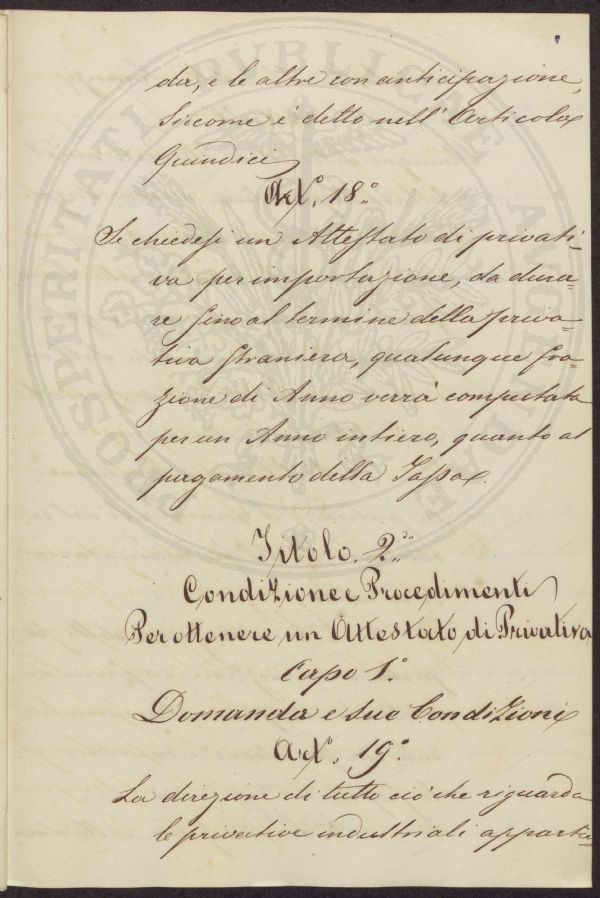 7
da, e le altre con anticipazione,
siccome è detto nell' Articolo
Quindici
Art.° 18.°
Se chiedesi un Attestato di privati-
va per importazione, da dura=
re fino al termine della priva=
tiva straniera, qualunque fra=
zione di Anno verrà computata
per un Anno intiero, quanto al
pagamento della Tassa.
Titolo 2.do
Condizione e Procedimenti
Per ottenere un Attestato di Privativa
Capo 1.°
Domanda e sue Condizioni
Art.° 19.°
La direzione di tutto ciò che riguarda
le privative industriali apparti=
PROSPERITATI PUBLICAE AUGENDAE